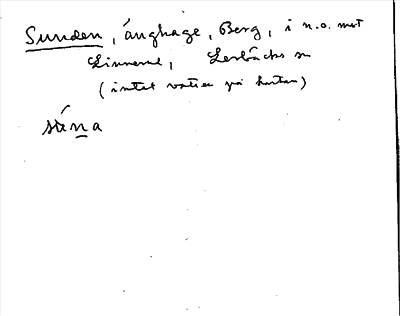 Sunden, änghage, Berg, i n.o. mot
Linnerud, Lerbäcks sn
(intet vatten på kartan)
súna